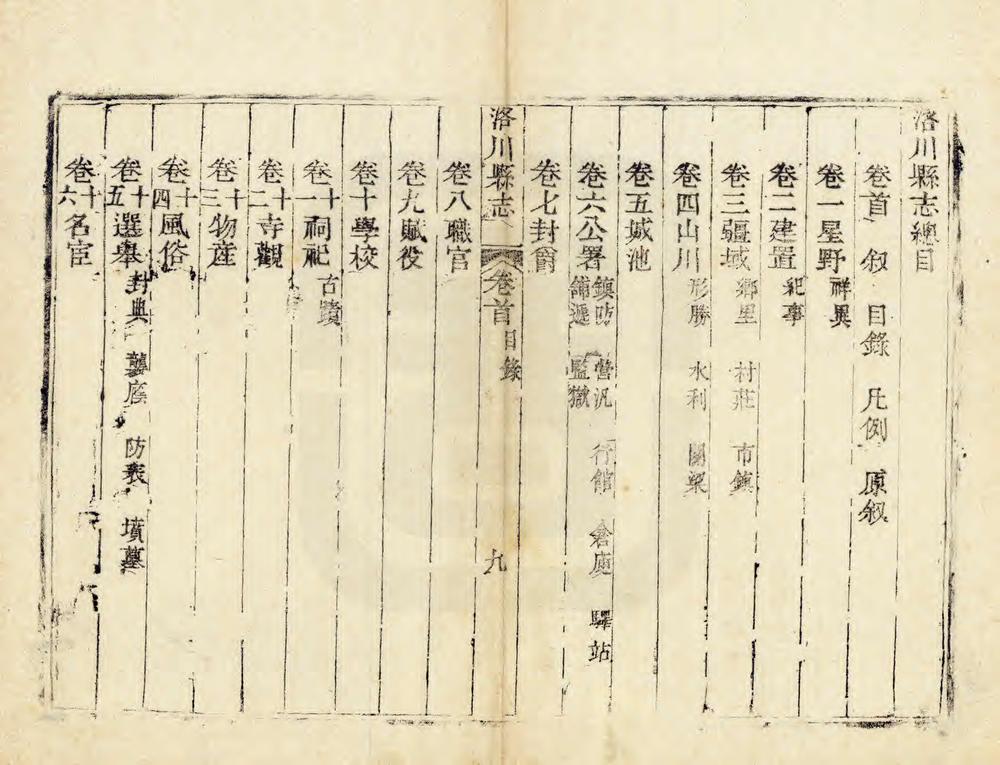 洛川縣志總目
卷首 叙 目錄 凡例 原叙
卷一星野 祥異
卷二建置 紀事
卷三疆域 鄉里 村莊 市鎮
卷四山川 形勝 水利 關梁
卷五城池
卷六公署 鎮防 營汛 舖遞 監獄 行館 倉廒 驛站
卷七封爵
洛川縣志 卷首 目錄 九
卷八職官
卷九賦役
卷十學校
卷十一祠祀 古蹟
卷十二寺觀
卷十三物産
卷十四風俗
卷十五選舉 封典 襲廕 坊表 墳墓
卷十六名宦